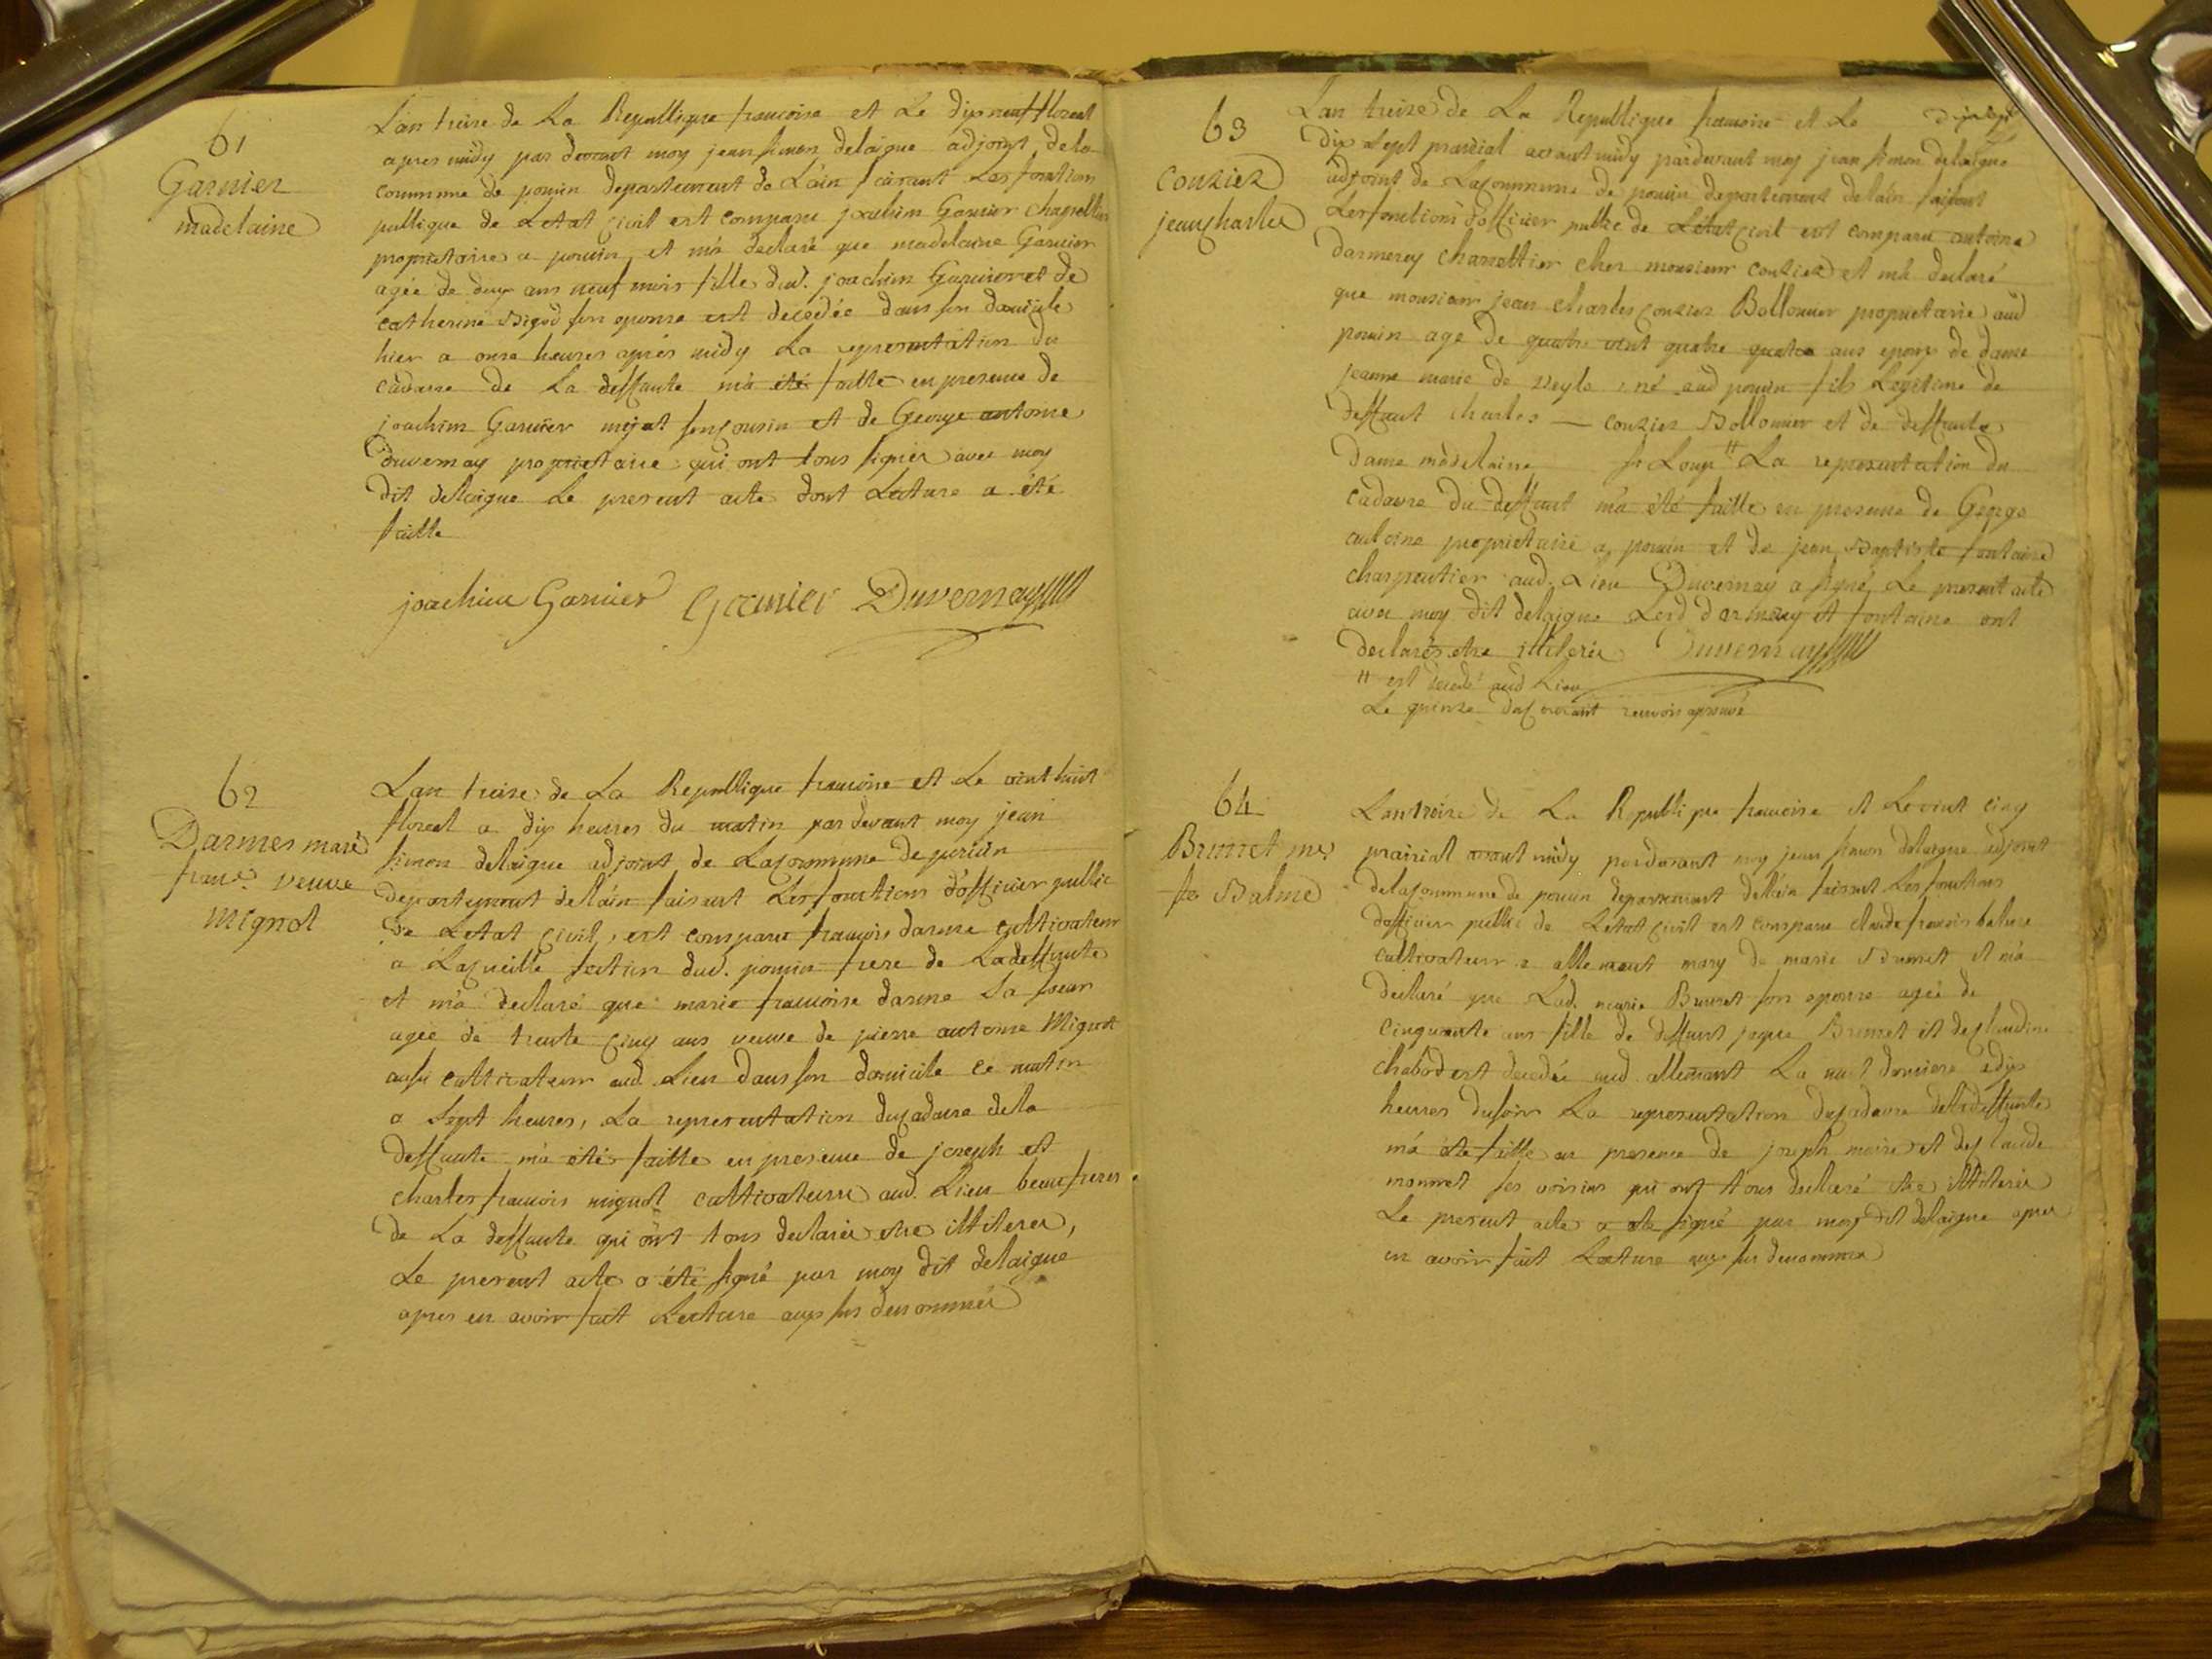 61
Garnier
madelaine
L'an treize de La Republique francoise et Le dix neuf floreal
apres midy par devant moy jean simon delaigue adjoint de la
commune de poncin departement de L'ain faisant Les fonctions
publique de Letat Civil est comparu joachim Garnier chapellier
propriétaire a poncin, et m'a declaré que madelaine Garnier
agée de deux ans neuf mois fille dud. joachim Garnier et de
catherine son epouse est decedée dans son domicile
hier a onze heures après midy La representation du
cadavre de La deffunte m'a été faitte en presence de
joachim Garnier son Cousin et de George antoine
Duvernay proprietaire qui ont tous signés avec moy
dit delaigue Le present acte dont Lecture a été
faitte
joachim Garnier Garnier Duvernay
62
Darmes marie
franc.e veuve
Mignot
L'an treize de La Republique francoise et Le vint huit
floreal a dix heures du matin par devant moy jean
simon delaigue adjoint de La Commune de poncin
departement de l'ain faisant Les fonctions d'officier public
de Letat Civil, est comparu francois darme cultivateur
a La Cueille section dud. poncin frere de La deffunte
et m'a declaré que marie francoise darme sa soeur
agée de trente Cinq ans veuve de pierre antoine Mignot
aussi cultivateur aud. Lieu dans son domicile ce matin
a sept heures, La representation du Cadavre de la
deffunte m'a été faitte en presence de joseph et
charles francois mignot cultivateurs aud. Lieu beaufreres
de La deffunte qui ont tous declarés etre illiterés,
Le present acte a été signé par moy dit delaigue
apres en avoir fait Lecture aux sus denommés
63
couzier
jean Charles
L'an treize de La Republique francoise et Le
dix sept prairial avant midy pardevant moy jean simon delaigue
adjoint de La Commune de poncin departement de lain faisant
Les fonctions d'officier public de Létat Civil est comparu antoine
darmerey charrettier chez monsieur couzier et m'a declaré
que monsieur jean charles Couzier Bollomier proprietaire aud
poncin age de quatre vint quatre ans epoux de dame
jeanne marie de veyle, né aud poncin fils Legitime de
deffunt charles — couzier Bollomier et de deffunte
dame madelaine st Loup # La representation du
cadavre du deffunt m'a été faitte en presence de George
antoine proprietaire a poncin et de jean Baptiste fontaine
charpentier aud. Lieu Duvernay a signé Le present acte
avec moy dit delaigue Lesd darmerey et fontaine ont
declarés etre illiterés Duvernay
# est decedé aud Lieu
Le quinze du Courant renvois aprouvé
64
Brunet me
fe Balme
L'an treize de La Republique francoise et Le vint cinq
prairial avant midy pardevant moy jean simon delaigue adjoint
de la Commune de poncin departement de l'ain faisant Les fonctions
d'officier public de Letat Civil est comparu claude francois balme
cultivateur a allement mary de marie Brunet et m'a
declaré que Lad. marie Brunet son epouse agée de
Cinquante ans fille de deffunt jaque Brunet et de Claudine
chabod est decedée aud allemant La nuit derniere a dix
heures du soir La representation du Cadavre de la deffunte
m'a été faitte en presence de joseph moire et de Claude
monnet ses voisins qui ont tous declaré etre illiterés
Le present acte a été signé par moy dit delaigue apres
en avoir fait Lecture aux sus denommés